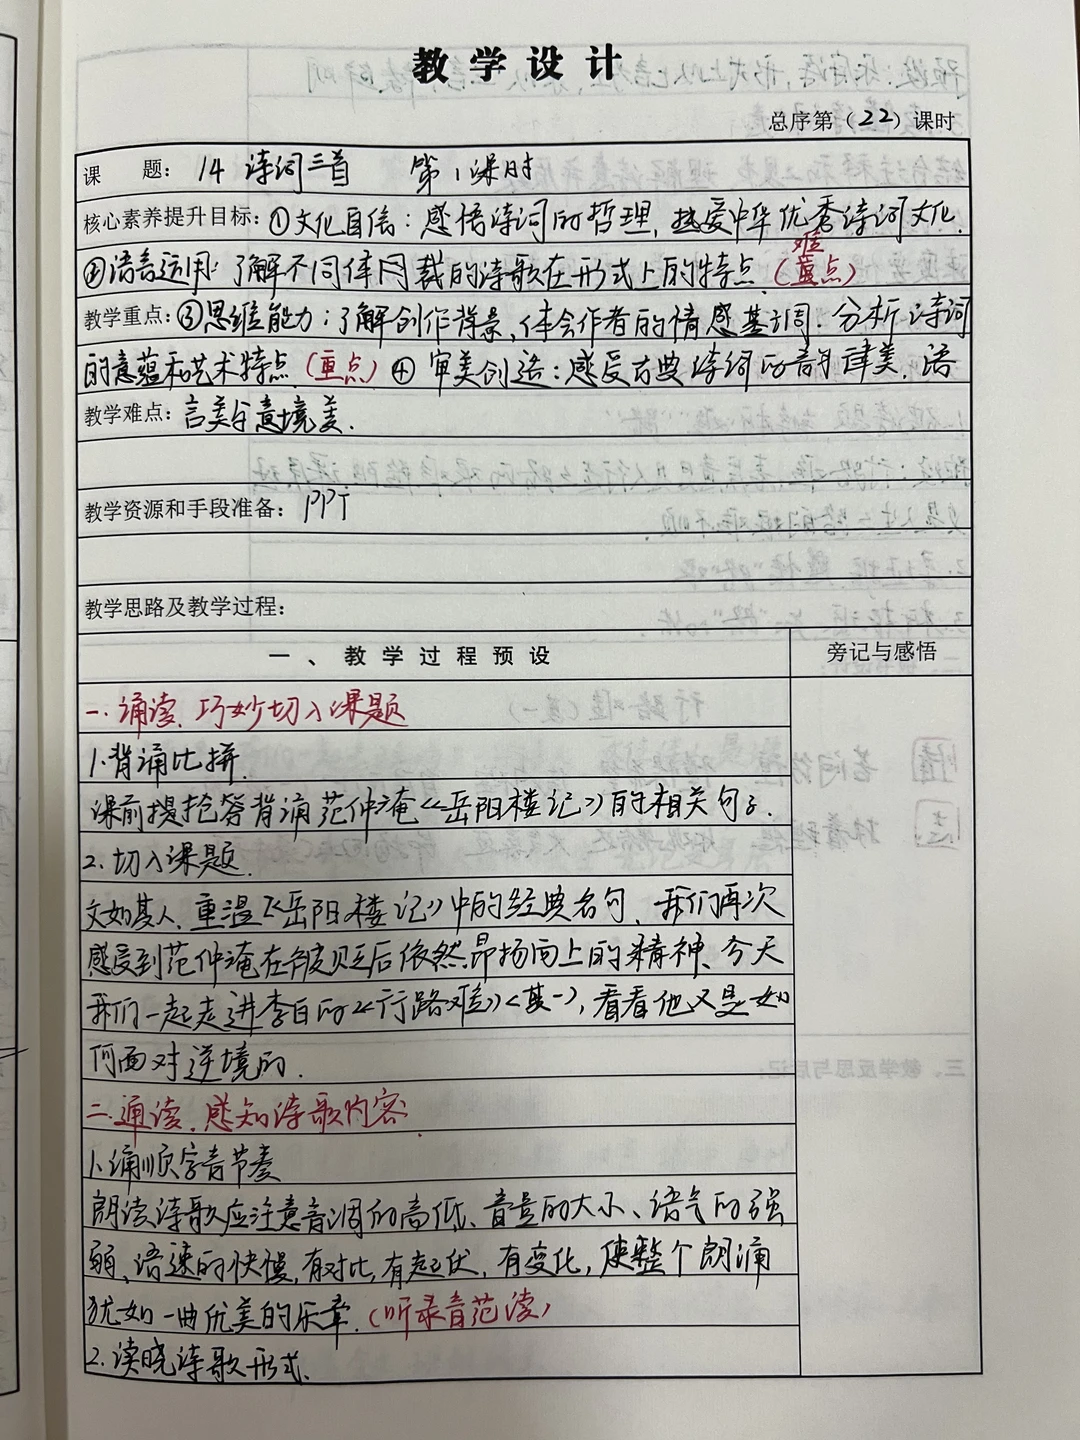 教学设计
总序第（22）课时
课 题：14 诗词三首 第1课时
核心素养提升目标：①文化自信：感悟诗词的哲理，热爱中华优秀诗词文化.
②语言运用：了解不同体裁的诗歌在形式上的特点（难点）
教学重点：③思维能力：了解创作背景，体会作者的情感基调.分析诗词
的意蕴和艺术特点（重点）④审美创造：感受古典诗词的音韵律美、语
教学难点：言美与意境美.
教学资源和手段准备：PPT
教学思路及教学过程：
一、教学过程预设 旁记与感悟
一.诵读、巧妙切入课题
1.背诵比拼.
课前提抢答背诵范仲淹《岳阳楼记》的相关句子.
2.切入课题.
文如其人，重温《岳阳楼记》中的经典名句，我们再次
感受到范仲淹在被贬后依然昂扬向上的精神、今天
我们一起走进李白的《行路难》<其一>，看看他又是如
何面对逆境的.
二.通读、感知诗歌内容
1.诵顺字音节奏
朗读诗歌应注意音调的高低、音量的大小、语气的强
弱、语速的快慢，有对比，有起伏，有变化，使整个朗诵
犹如一曲优美的乐章.（听录音范读）
2.读晓诗歌形式.